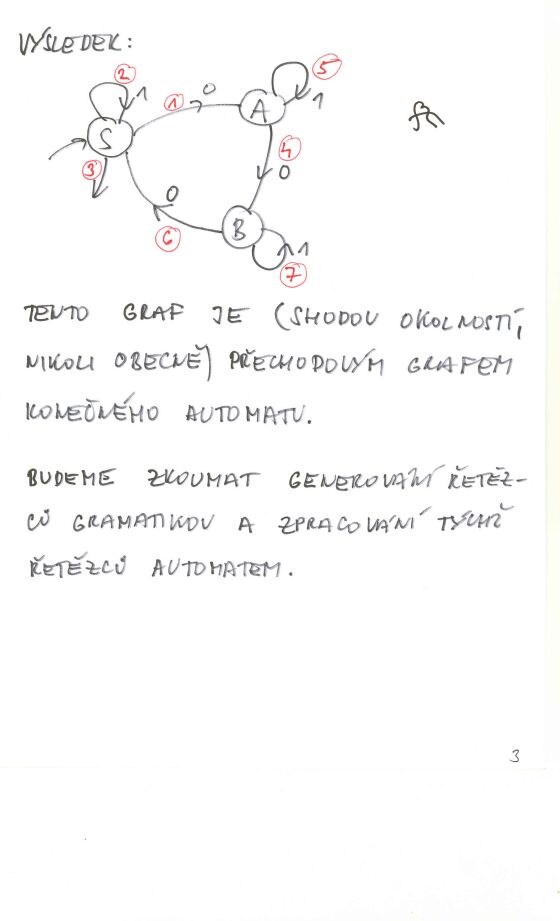 VÝSLEDEK:
2 1 0 5
1 A 1
S
3 4
0
0
B
6 1
7
TENTO GRAF JE (SHODOU OKOLNOSTÍ,
NIKOLI OBECNĚ) PŘECHODOVÝM GRAFEM
KONEČNÉHO AUTOMATU.
BUDEME ZKOUMAT GENEROVÁNÍ ŘETĚZ-
CŮ GRAMATIKOU A ZPRACOVÁNÍ TÝCHŽ
ŘETĚZCŮ AUTOMATEM.
3